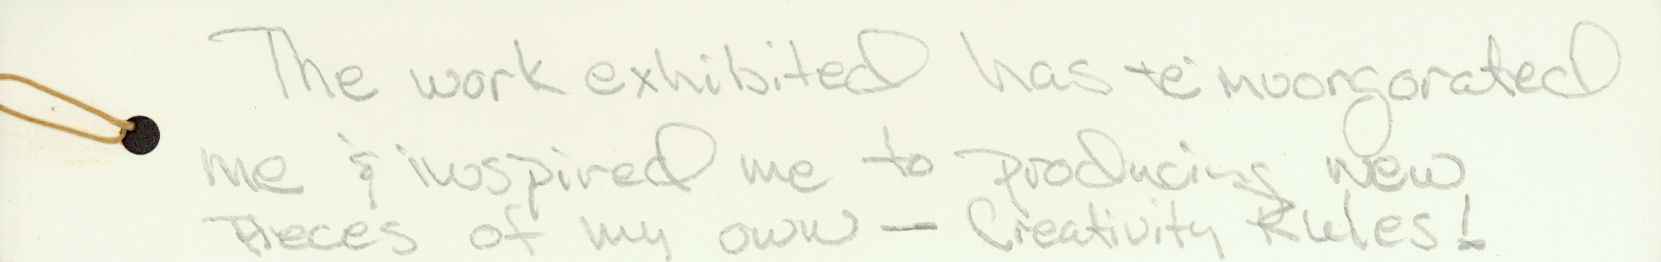 The work exhibited has reinvorgorated
me & inspired me to producing new
pieces of my own – Creativity Rules!